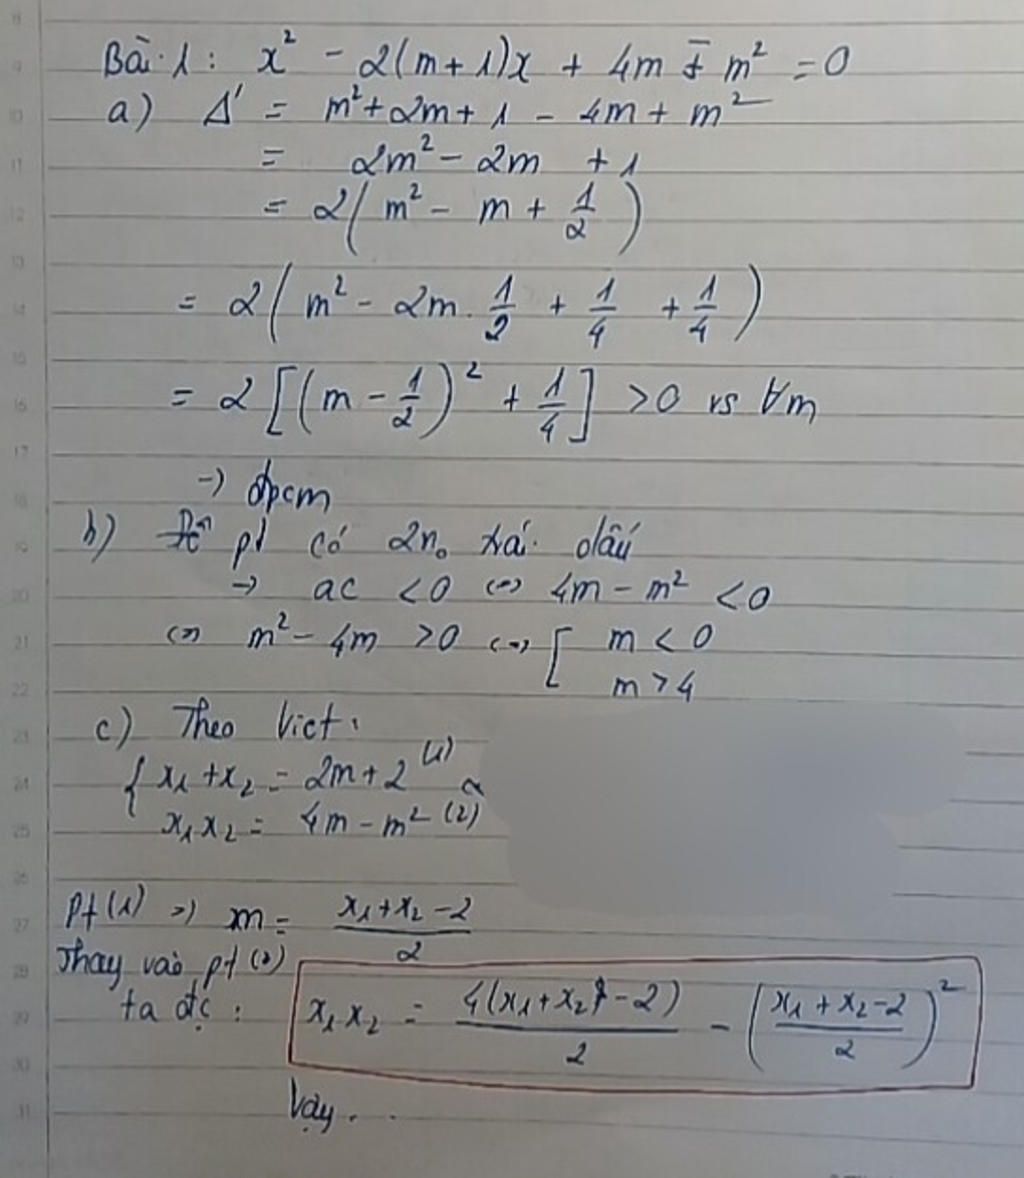 Bài 1: x² - 2(m+1)x + 4m - m² = 0
a) Δ' = m² + 2m + 1 - 4m + m²
= 2m² - 2m + 1
= 2(m² - m + 1/2)
= 2(m² - 2m . 1/2 + 1/4 + 1/4)
= 2[(m - 1/2)² + 1/4] > 0 vs ∀m
→ đpcm
b) pt có 2n₀ trái dấu
→ ac < 0 ⇔ 4m - m² < 0
⇔ m² - 4m > 0 ⇔ [ m < 0
m > 4
c) Theo Viet:
{ x₁ + x₂ = 2m + 2 (1)
x₁x₂ = 4m - m² (2)
Pt (1) => m = (x₁ + x₂ - 2)/2
Thay vào pt (2)
ta đc: x₁x₂ = 4(x₁ + x₂ - 2)/2 - ((x₁ + x₂ - 2)/2)²
Vậy . .